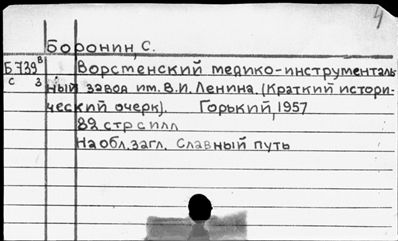 4
Боронин, С.
Б 739 в Ворсменский медико-инструменталь
с 3 ный завод им. В.И. Ленина. (Краткий истори-
ческий очерк). Горький, 1957
82 стр с илл
На обл. загл. Славный путь